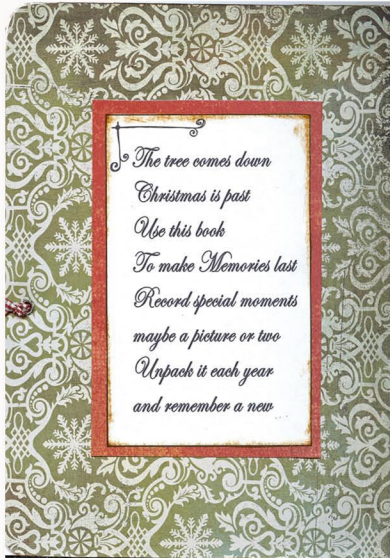 The tree comes down
Christmas is past
Use this book
To make Memories last
Record special moments
maybe a picture or two
Unpack it each year
and remember a new